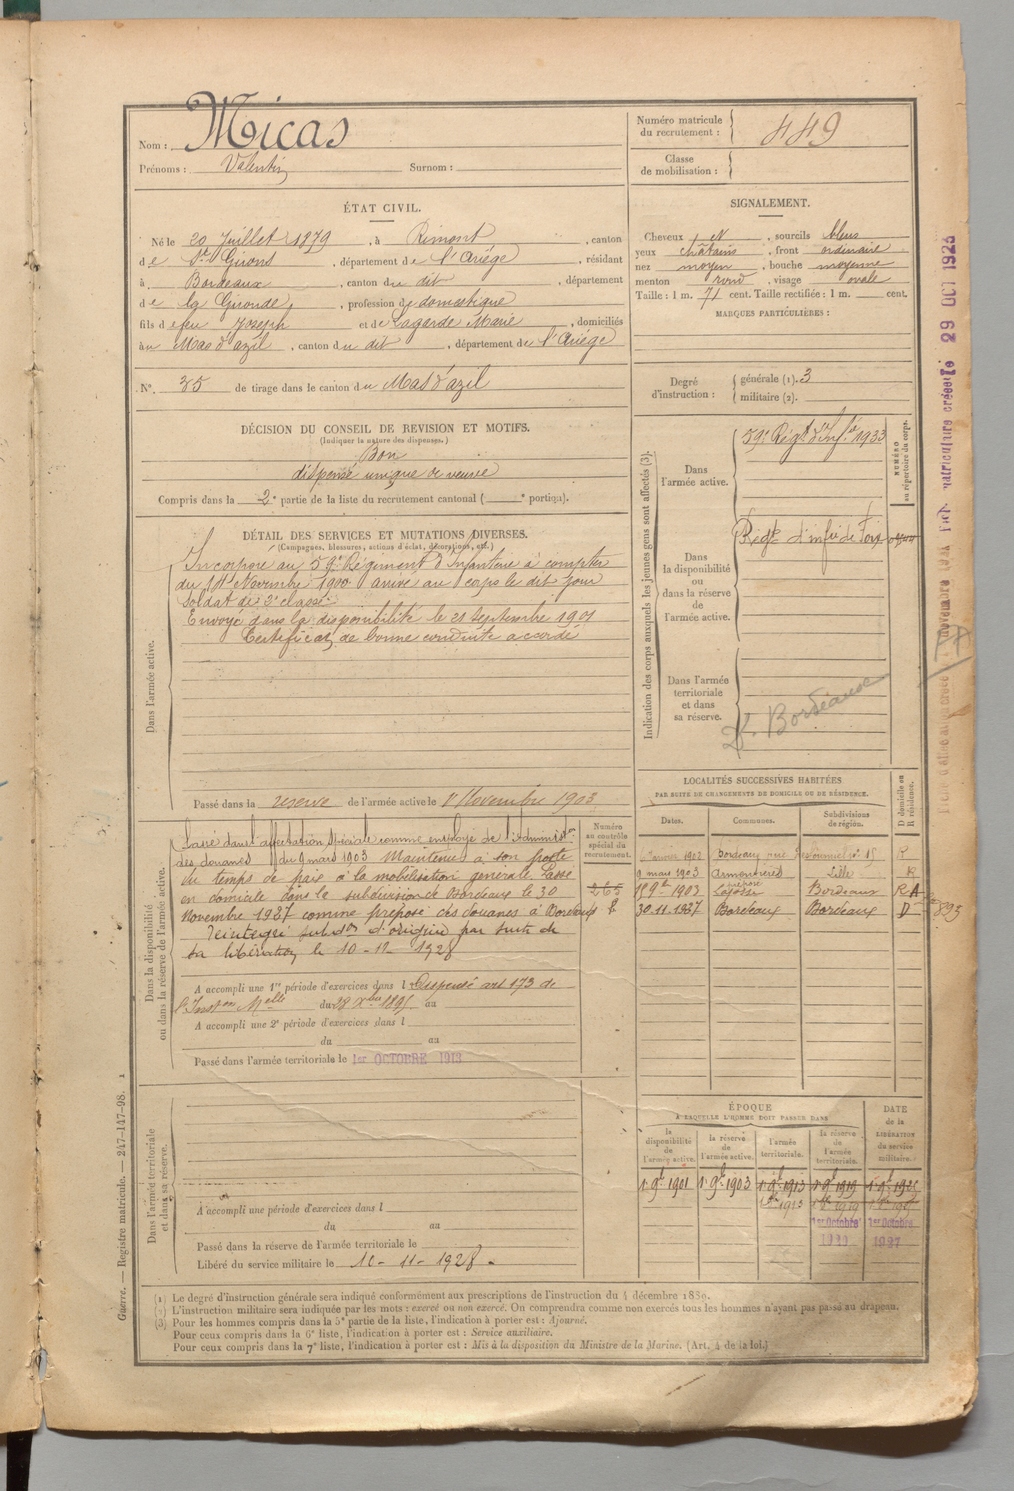 Nom : Micas
Prénoms : Valentin Surnom :
Numéro matricule du recrutement : 449
Classe de mobilisation :
ÉTAT CIVIL.
Né le 20 Juillet 1879, à Rimont, canton
de St Girons, département de l'Ariège, résidant
à Bordeaux, canton du dit, département
de la Gironde, profession de domestique
fils de feu Joseph et de Lagarde Marie, domiciliés
au Mas d'azil, canton du dit, département de l'Ariège
N° 35 de tirage dans le canton du Mas d'azil
SIGNALEMENT.
Cheveux N, sourcils bleus
yeux châtains, front ordinaire
nez moyen, bouche moyenne
menton rond, visage ovale
Taille : 1 m. 71 cent. Taille rectifiée : 1 m. cent.
MARQUES PARTICULIÈRES :
Degré d'instruction : générale (1). 3
militaire (2).
DÉCISION DU CONSEIL DE REVISION ET MOTIFS.
(Indiquer la nature des dispenses.)
Bon
dispensé unique de veuve
Compris dans la 2e partie de la liste du recrutement cantonal ( e portion).
DÉTAIL DES SERVICES ET MUTATIONS DIVERSES.
(Campagnes, blessures, actions d'éclat, décorations, etc.)
Dans l'armée active.
Incorporé au 59e Régiment d'Infanterie à compter
du 14 Novembre 1900 arrivé au corps le dit jour
Soldat de 2e classe
Envoyé dans la disponibilité le 21 septembre 1901
Certificat de bonne conduite accordé
Passé dans la réserve de l'armée active le 1er Novembre 1903
Indication des corps auxquels les jeunes gens sont affectés (3).
NUMÉRO au répertoire du corps.
Dans l'armée active.
59e Régt d'Infie 1933
Dans la disponibilité ou dans la réserve de l'armée active.
Régt d'infie de Foix
Dans l'armée territoriale et dans sa réserve.
Bordeaux
Dans la disponibilité ou dans la réserve de l'armée active.
Passé dans l'affectation spéciale comme employé de l'Administon
des douanes du 9 mars 1903 Maintenu à son poste
du temps de paix à la mobilisation générale. Passé
en domicile dans la subdivision de Bordeaux le 30
Novembre 1927 comme préposé des douanes à Bordeaux
réintégré subdon d'origine par suite de
sa libération le 10-11-1928
Numéro au contrôle spécial du recrutement.
265
A accompli une 1re période d'exercices dans l Dispensé art 173 de
l'Inston Melle du 28 Xbre 1895 au
A accompli une 2e période d'exercices dans l
du au
Passé dans l'armée territoriale le 1er OCTOBRE 1913
LOCALITÉS SUCCESSIVES HABITÉES
PAR SUITE DE CHANGEMENTS DE DOMICILE OU DE RÉSIDENCE.
D domicile ou R résidence.
Dates. Communes. Subdivisions de région.
janvier 1902 Bordeaux rue R
9 mars 1903 Armentières Lille R
1 9bre 1903 préposé Bordeaux R A
30.11.1927 Bordeaux Bordeaux D
893
Dans l'armée territoriale et dans sa réserve.
A accompli une période d'exercices dans l
du au
Passé dans la réserve de l'armée territoriale le
Libéré du service militaire le 10-11-1928.
ÉPOQUE
A LAQUELLE L'HOMME DOIT PASSER DANS
la disponibilité de l'armée active.
la réserve de l'armée active.
l'armée territoriale.
la réserve de l'armée territoriale.
DATE de la LIBÉRATION du service militaire.
1er 9bre 1901 1er 9bre 1903 1er 9bre 1913 1er 9bre 1919
1er Octobre 1er Octobre
1927
(1) Le degré d'instruction générale sera indiqué conformément aux prescriptions de l'instruction du 4 décembre 1889.
(2) L'instruction militaire sera indiquée par les mots : exercé ou non exercé. On comprendra comme non exercés tous les hommes n'ayant pas passé au drapeau.
(3) Pour les hommes compris dans la 5e partie de la liste, l'indication à porter est : Ajourné.
Pour ceux compris dans la 6e liste, l'indication à porter est : Service auxiliaire.
Pour ceux compris dans la 7e liste, l'indication à porter est : Mis à la disposition du Ministre de la Marine. (Art. 4 de la loi.)
Guerre. — Registre matricule. — 247-147-98. 1
29 OCT 1925